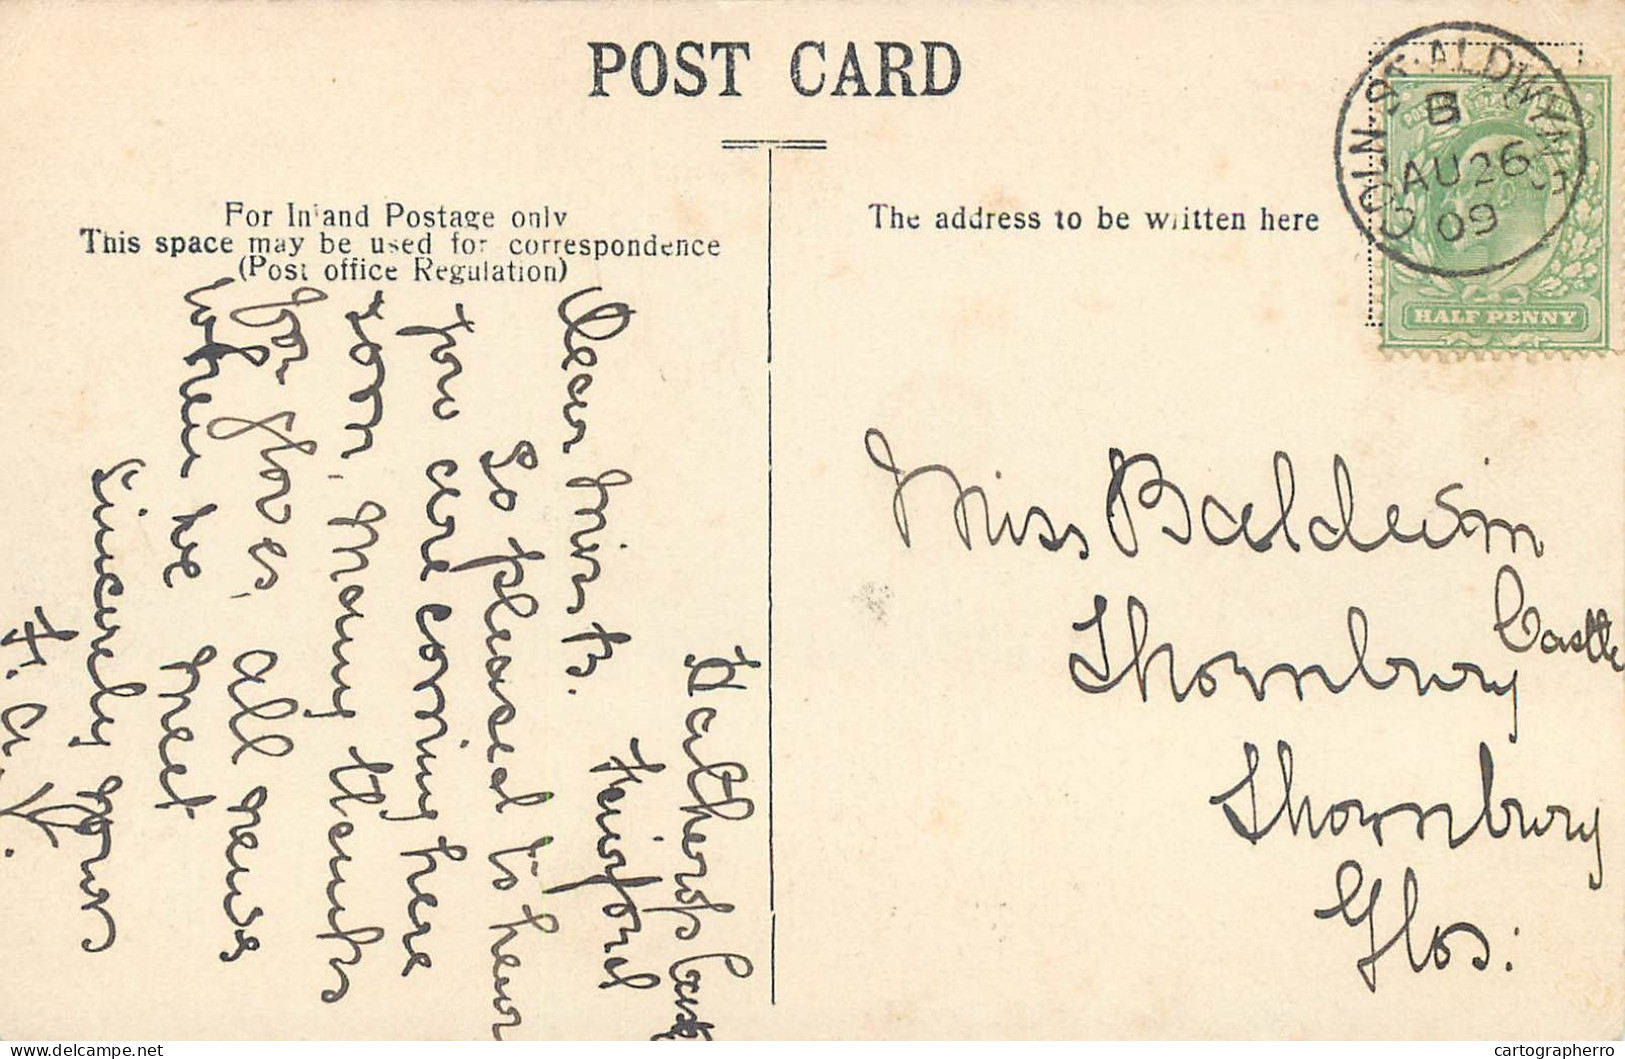 POST CARD
For Inland Postage only
This space may be used for correspondence
(Post office Regulation)
The address to be written here
COLN·ST·ALDWYNS
B
AU 26
09
HALF PENNY
Hatherop Castle
Fairford
Dear Miss B.
So pleased to hear
you are coming here
soon. Many thanks
for gloves, all news
when we meet
Sincerely yours
F. A. V.
Miss Baldwin
Thornbury Castle
Thornbury
Glos:
delcampe.net
cartographerro